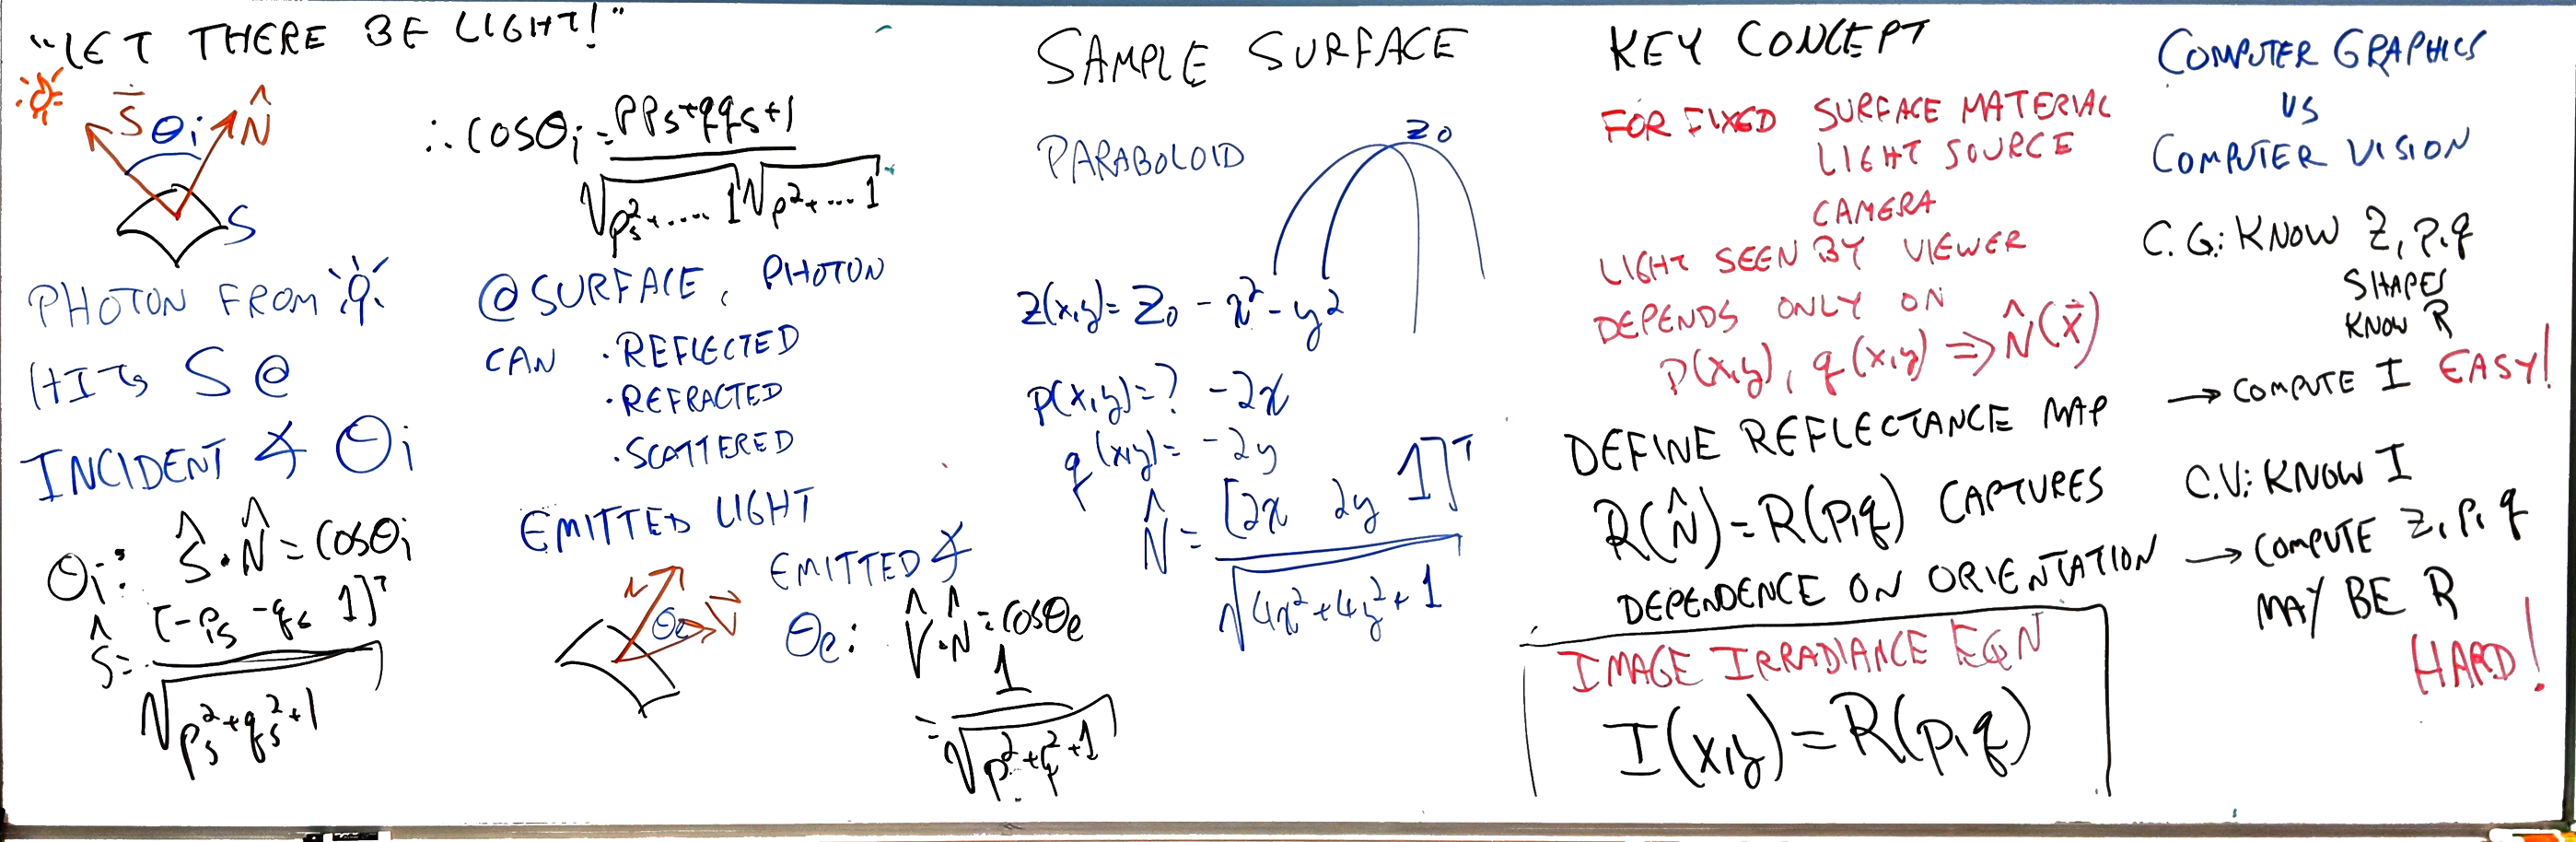 "LET THERE BE LIGHT!"
S⃗ θi N̂
S
∴ cosθi = pps+qqs+1
√ps²+.....1 √p²+...1
PHOTON FROM
HITS S @
INCIDENT ∡ θi
θi: Ŝ·N̂ = cosθi
Ŝ = [-ps -qs 1]ᵀ
√ps²+qs²+1
@SURFACE, PHOTON
CAN · REFLECTED
· REFRACTED
· SCATTERED
EMITTED LIGHT
N θe V⃗
EMITTED ∡
θe: V̂·N̂ = cosθe
= 1
√p²+q²+1
SAMPLE SURFACE
PARABOLOID
Z0
Z(x,y) = Z0 - x² - y²
p(x,y) = ? -2x
q(x,y) = -2y
N̂ = [2x 2y 1]ᵀ
√4x²+4y²+1
KEY CONCEPT
FOR FIXED SURFACE MATERIAL
LIGHT SOURCE
CAMERA
LIGHT SEEN BY VIEWER
DEPENDS ONLY ON
P(x,y), q(x,y) ⇒ N̂(x⃗)
DEFINE REFLECTANCE MAP
R(N̂) = R(p,q) CAPTURES
DEPENDENCE ON ORIENTATION
IMAGE IRRADIANCE EQN
I(x,y) = R(p,q)
COMPUTER GRAPHICS
VS
COMPUTER VISION
C.G.: KNOW Z, p, q
SHAPES
KNOW R
→ COMPUTE I EASY!
C.V.: KNOW I
→ COMPUTE Z, p, q
MAY BE R
HARD!